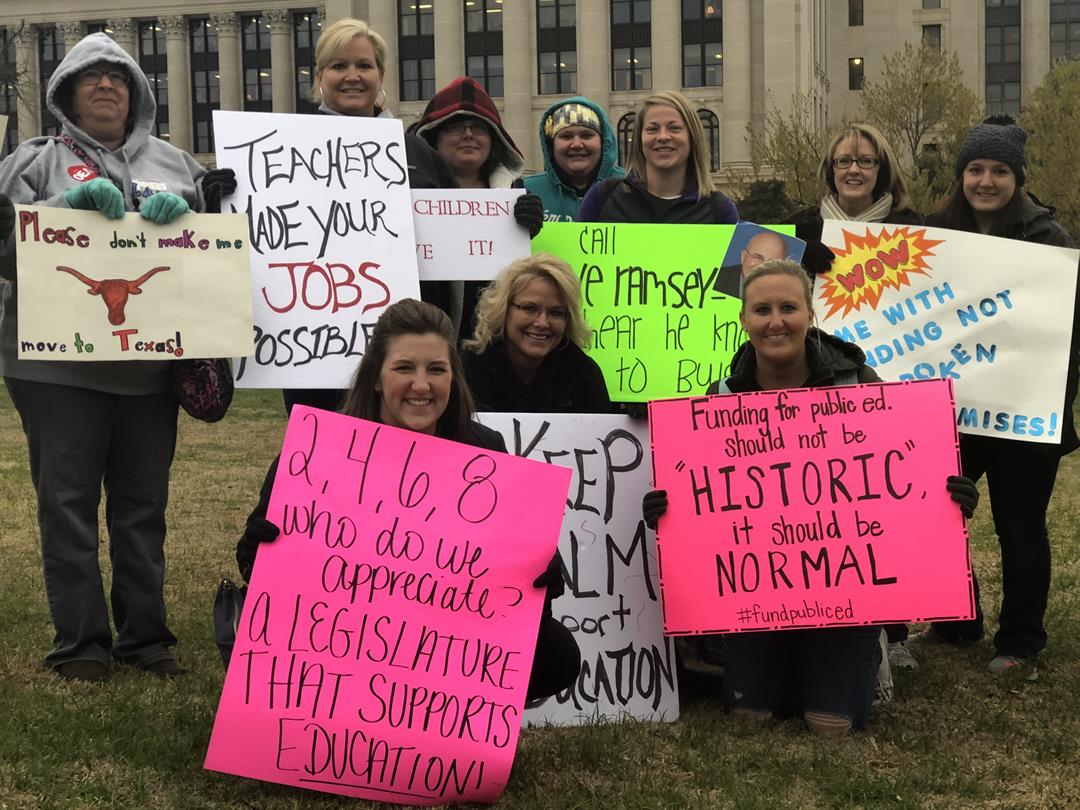 Please don't make me
move to Texas!
TEACHERS
MADE YOUR
JOBS
POSSIBLE
CHILDREN
IT!
CALL
RAMSEY
hear he
TO
WOW
WITH
NOT
PROMISES!
2, 4, 6, 8
who do we
appreciate?
A LEGISLATURE
THAT SUPPORTS
EDUCATION!
KEEP
CALM
Funding for public ed.
should not be
"HISTORIC",
it should be
NORMAL
#fundpubliced